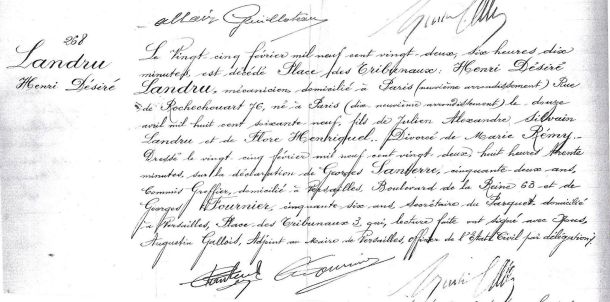 268
Landru
Henri Désiré
Le Vingt cinq février mil neuf cent vingt-deux, six heures dix
minutes, est décédé Place des Tribunaux: Henri Désiré
Landru, mécanicien, domicilié à Paris (neuvième arrondissement) Rue
de Rochechouart 76, né à Paris (dix neuvième arrondissement) le douze
avril mil huit cent soixante neuf, fils de Julien Alexandre Silvain
Landru et de Flore Henriquel. Divorcé de Marie Rémy.
Dressé le vingt cinq février mil neuf cent vingt-deux, huit heures trente
minutes, sur la déclaration de Georges Santerre, cinquante-deux ans,
Commis Greffier, domicilié à Versailles, Boulevard de la Reine 63 et de
Georges Fournier, cinquante six ans, Secrétaire du Parquet domicilié
à Versailles, Place des Tribunaux 3, qui, lecture faite ont signé avec
Augustin Gallois, Adjoint au Maire de Versailles, officier de l'Etat Civil par délégation